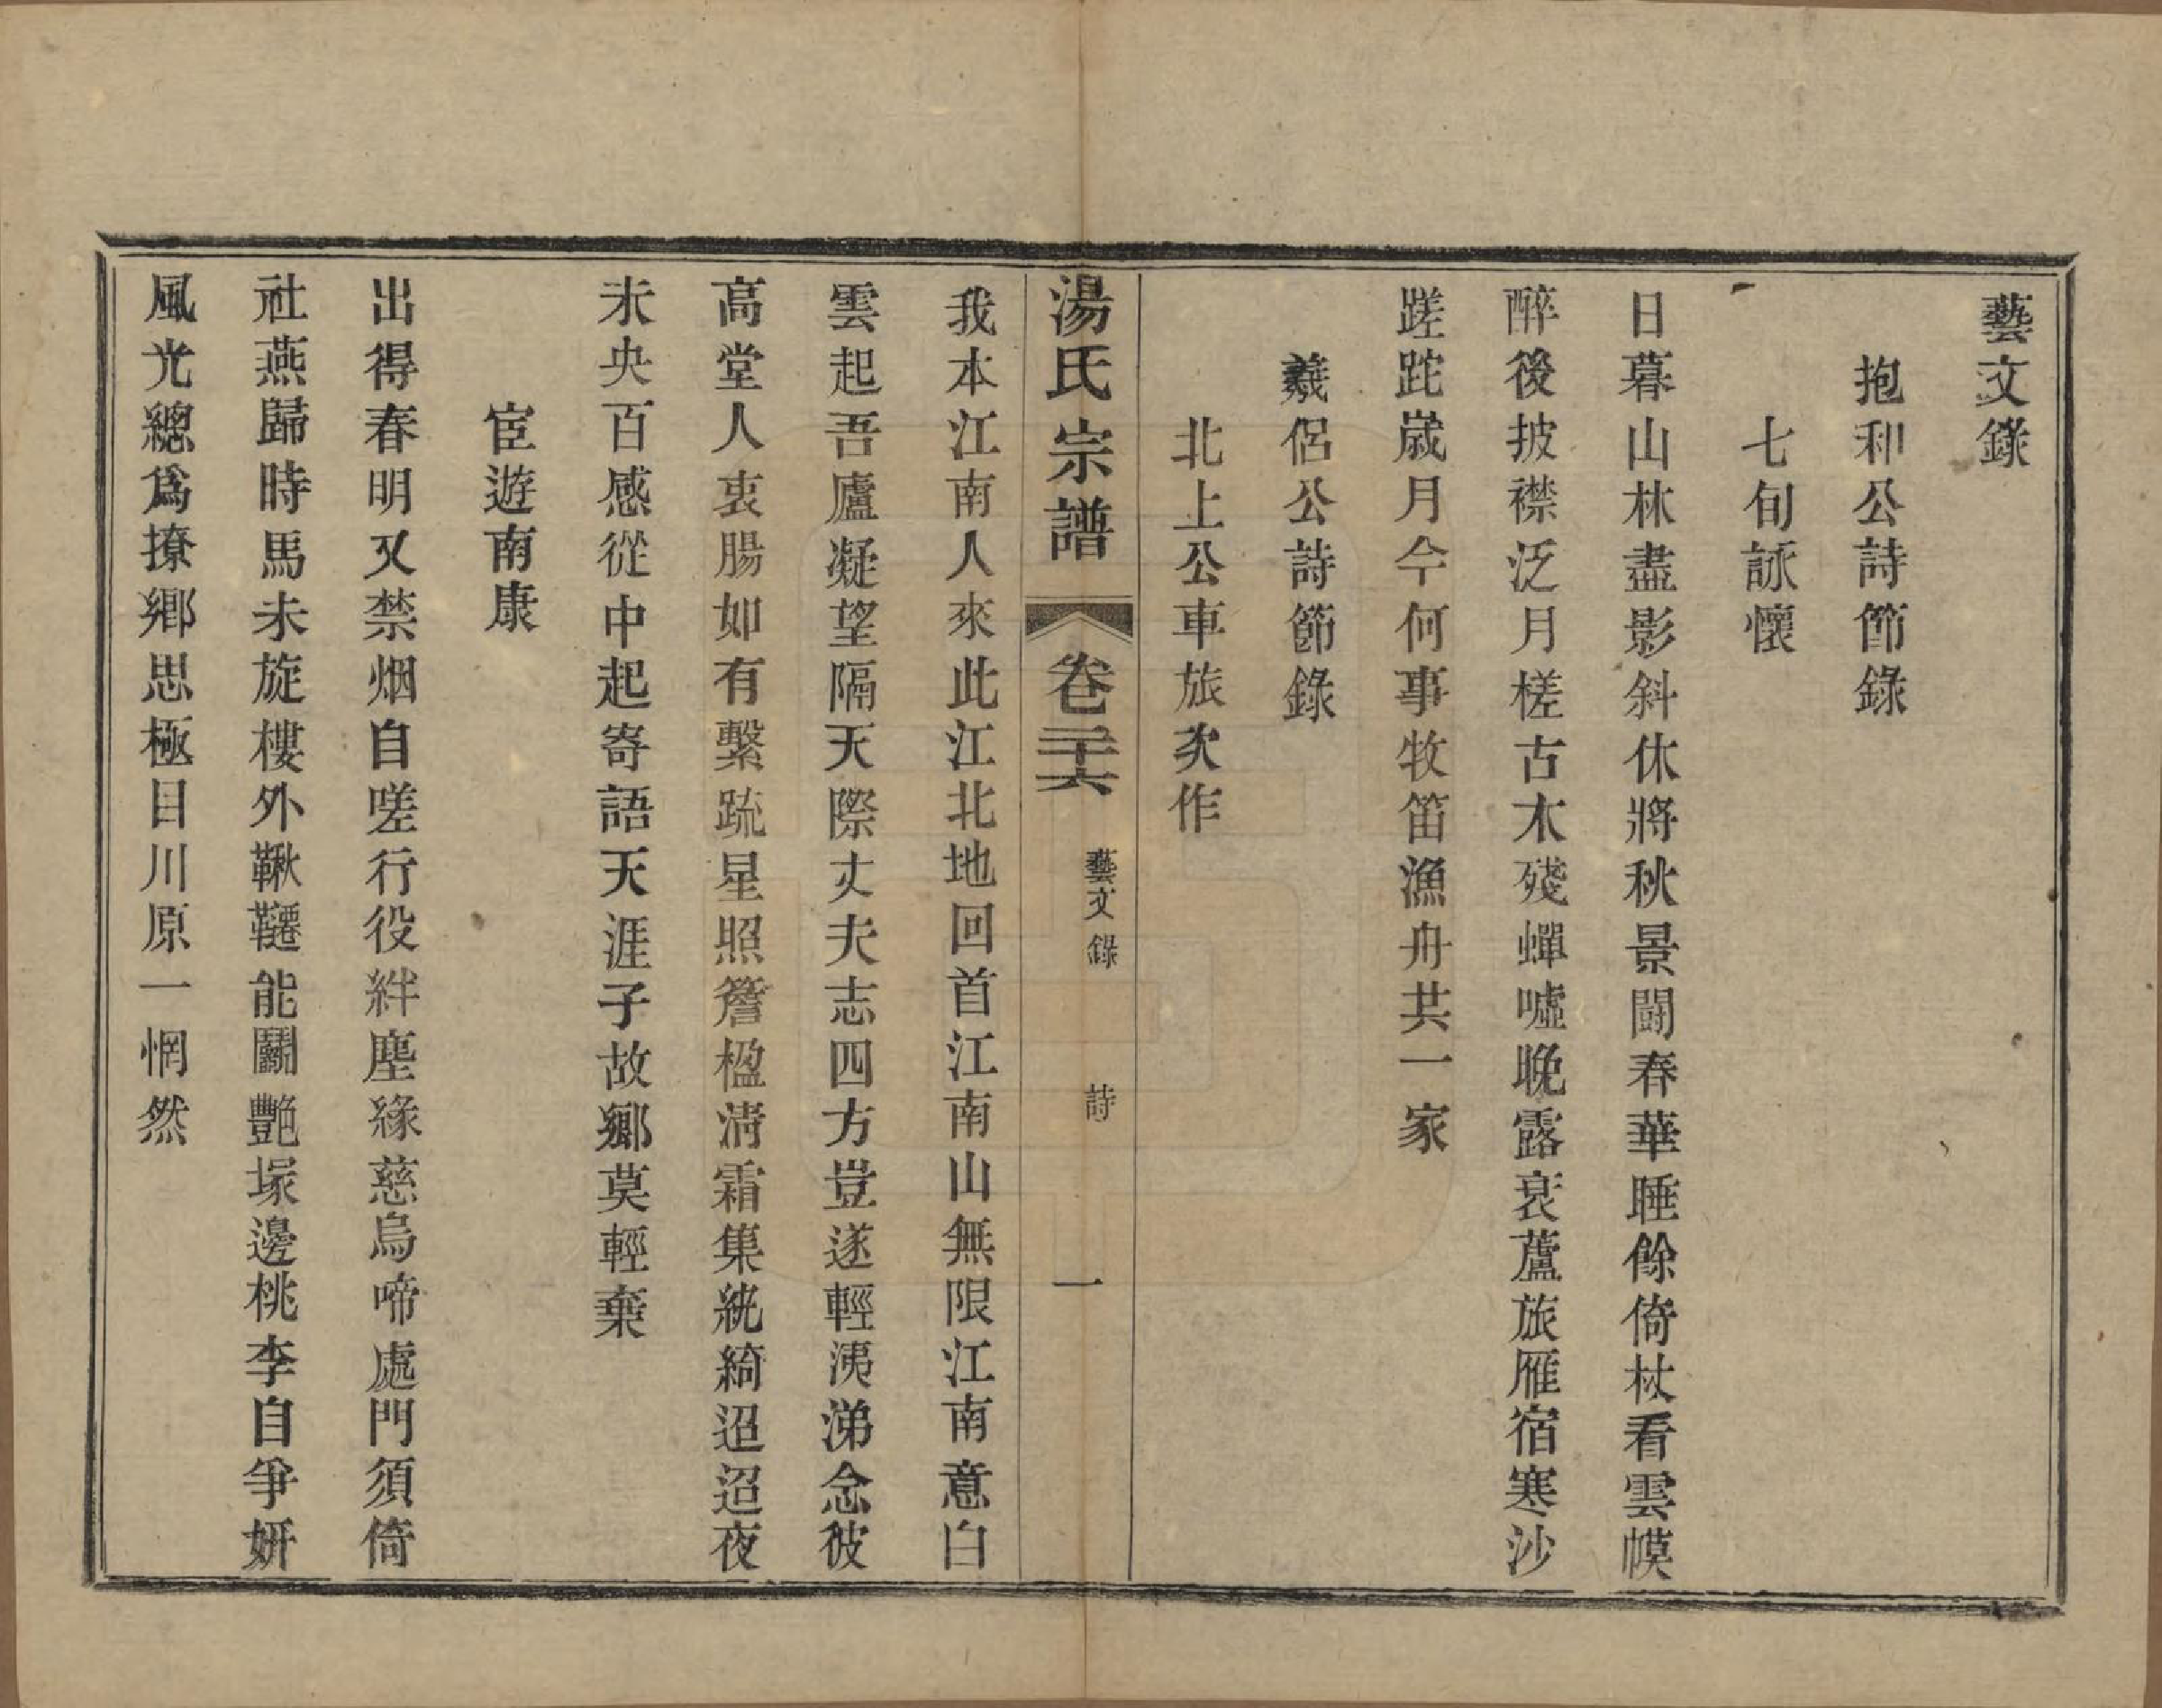 藝文錄
抱和公詩節錄
七旬詠懷
日暮山林盡影斜休將秋景鬪春華睡餘倚杖看雲幙
醉後披襟泛月槎古木殘蟬噓晚露衰蘆旅雁宿寒沙
蹉跎歲月今何事牧笛漁舟共一家
羲侶公詩節錄
北上公車旅次作
湯氏宗譜 卷二十六 藝文錄 詩 一
我本江南人來此江北地回首江南山無限江南意白
雲起吾廬凝望隔天際丈夫志四方豈遂輕洟涕念彼
高堂人衷腸如有繫疏星照簷楹淸霜集綂綺迢迢夜
未央百感從中起寄語天涯子故鄉莫輕棄
宦遊南康
出得春明又禁烟自嗟行役絆塵緣慈烏啼處門須倚
社燕歸時馬未旋樓外鞦韆能鬭艷塚邊桃李自爭妍
風光總爲撩鄉思極目川原一惘然